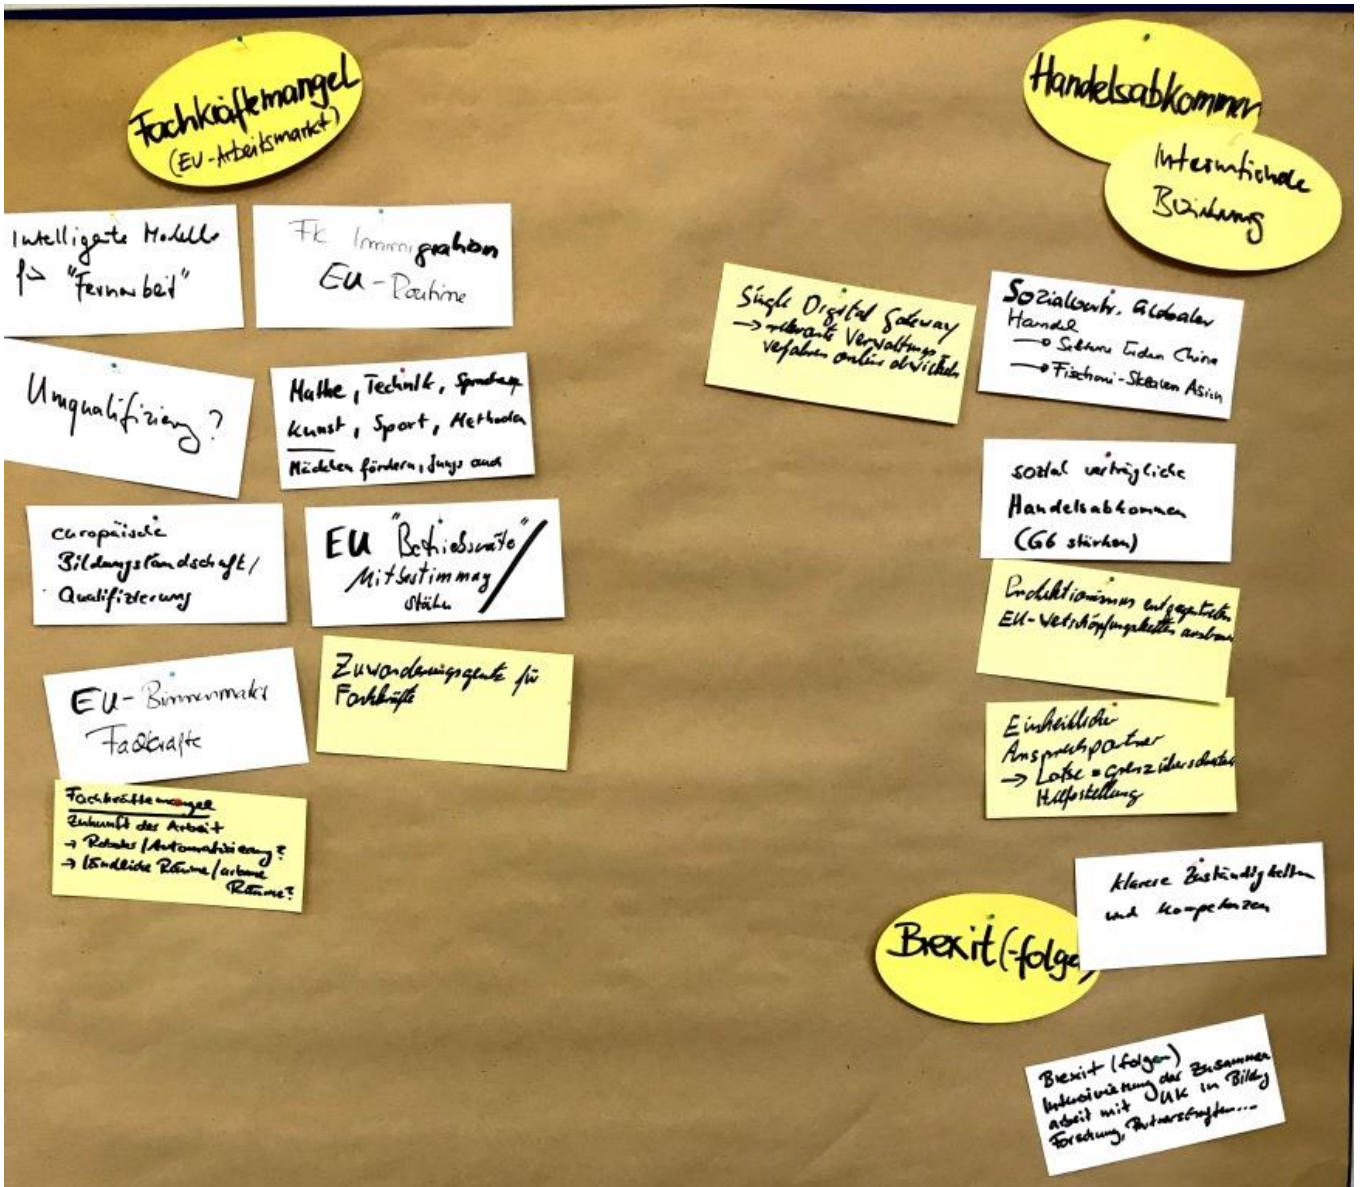 Fachkräftemangel
(EU-Arbeitsmarkt)
Intelligente Modelle
für "Fernarbeit"
FK Immigration
EU-Routine
Umqualifizierung?
Mathe, Technik, Sprachen
Kunst, Sport, Methoden
Mädchen fördern, Jungs auch
europäische
Bildungslandschaft/
Qualifizierung
EU "Betriebsräte"
Mitbestimmung
stärken
EU-Binnenmarkt
Fachkräfte
Zuwanderungsgesetz für
Fachkräfte
Fachkräftemangel
Zukunft der Arbeit
→ Roboter/Automatisierung?
→ ländliche Räume/urbane
Räume?
Handelsabkommen
Internationale
Beziehung
Single Digital Gateway
→ relevante Verwaltungs
verfahren online abwickeln
Sozialvertr. Globaler
Handel
→ China
→ Fischerei-Sklaven Asien
sozial verträgliche
Handelsabkommen
(G6 stärken)
Protektionismus entgegentreten
EU-Wertschöpfungsketten
Einheitlicher
Ansprechpartner
→ Lotse = grenzüberschreitende
Hilfestellung
klarere Zuständigkeiten
und Kompetenzen
Brexit(-folgen)
Brexit (folgen)
Intensivierung der Zusammen
arbeit mit UK in Bildg
Forschung, Partnerschaften...